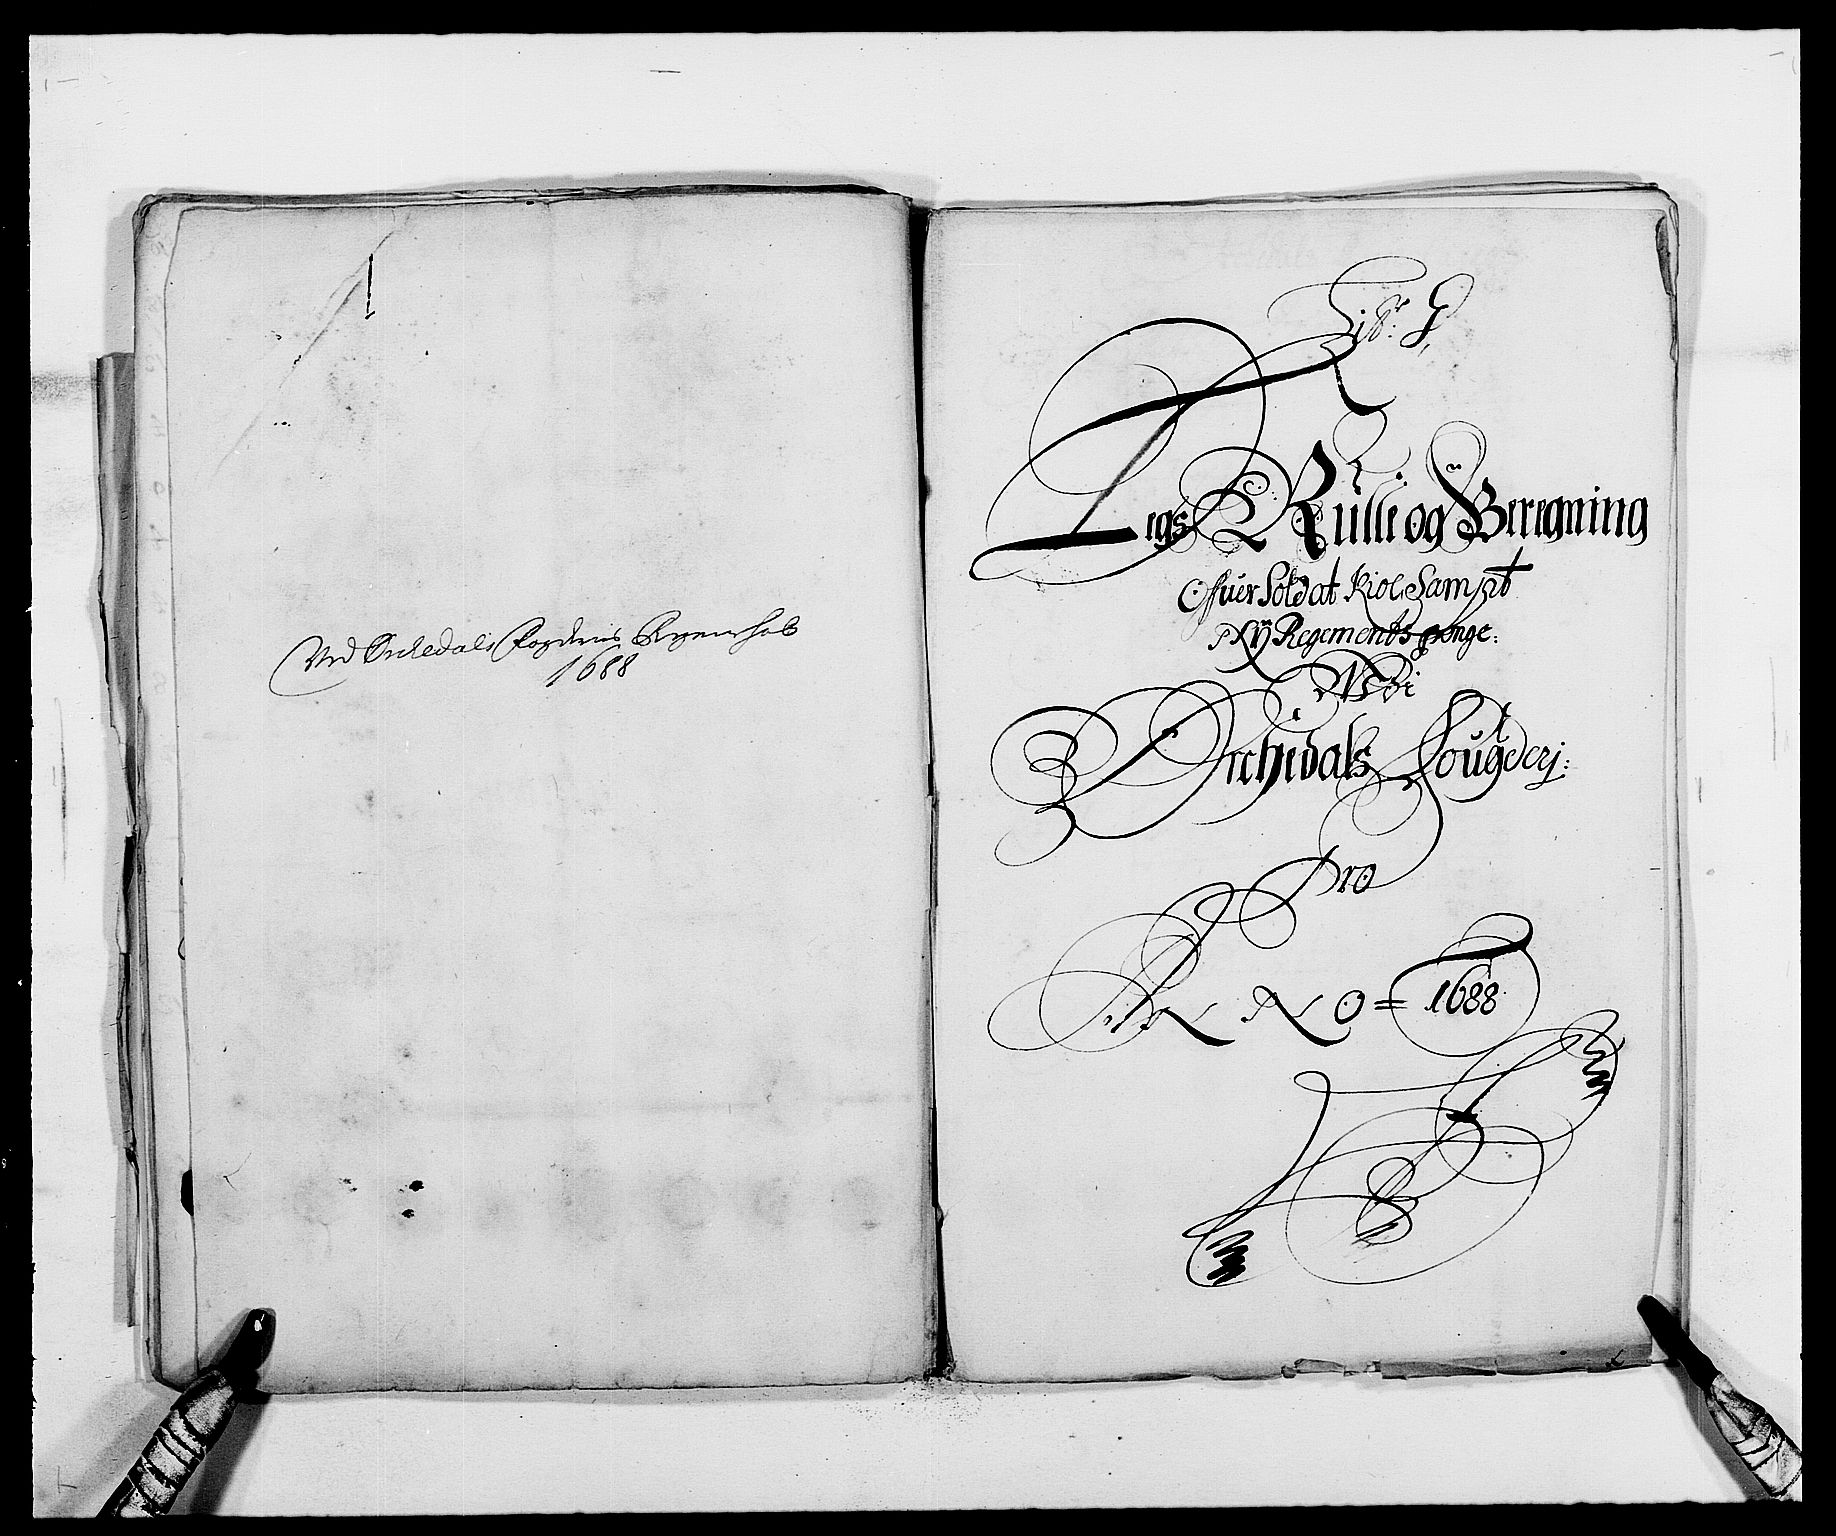 Ved Orchedals Fogderies Regenskab
1688
Litr: G,
Legs Rulle og Beregning
Offuer Soldat Kiole Sampt
Nÿ Regements penge:
Udi
Orchedals Fougderj:
Pro
ANNO = 1688